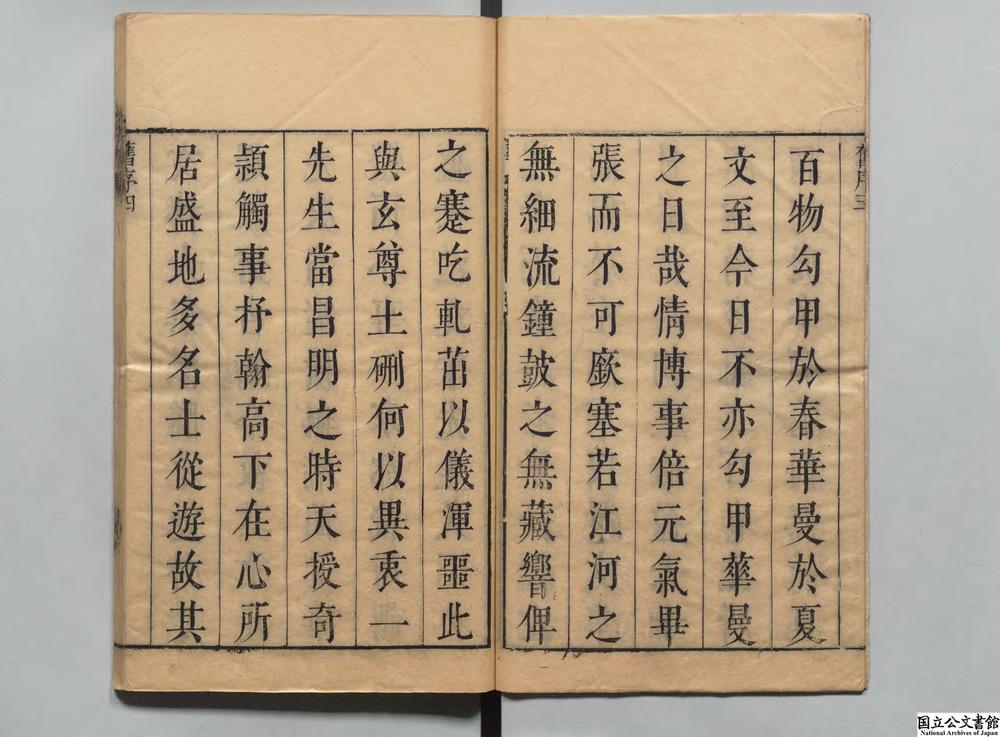 舊序三
百物勾甲於春華曼於夏
文至今日不亦勾甲華曼
之日哉情博事倍元氣畢
張而不可厭塞若江河之
無細流鐘鼓之無藏響俾
之蹇吃軋茁以儀渾噩此
與玄尊土硎何以異袠一
先生當昌明之時天授奇
頴觸事抒翰高下在心所
居盛地多名士從遊故其
舊序四
国立公文書館
National Archives of Japan